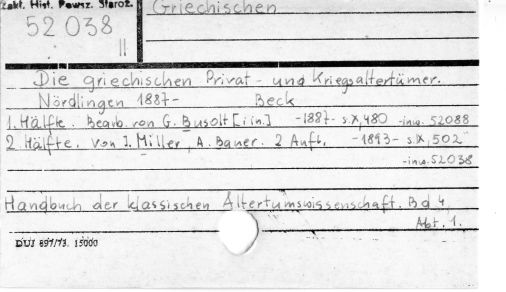 Zakł. Hist. Powsz. Staroż.
Griechischen
52 038
II
Die griechischen Privat- und Kriegsaltertümer.
Nördlingen 1887- Beck
1. Hälfte. Bearb. von G. Busolt [i in.] -1887- s. X, 480 -inw. 52088
2 Hälfte. von I. Miller, A. Bauer. 2 Aufl. -1893- s. X, 502
-inw. 52038
Handbuch der klassischen Altertumswissenschaft. Bd 4,
Abt. 1.
DUJ 697/73. 15000